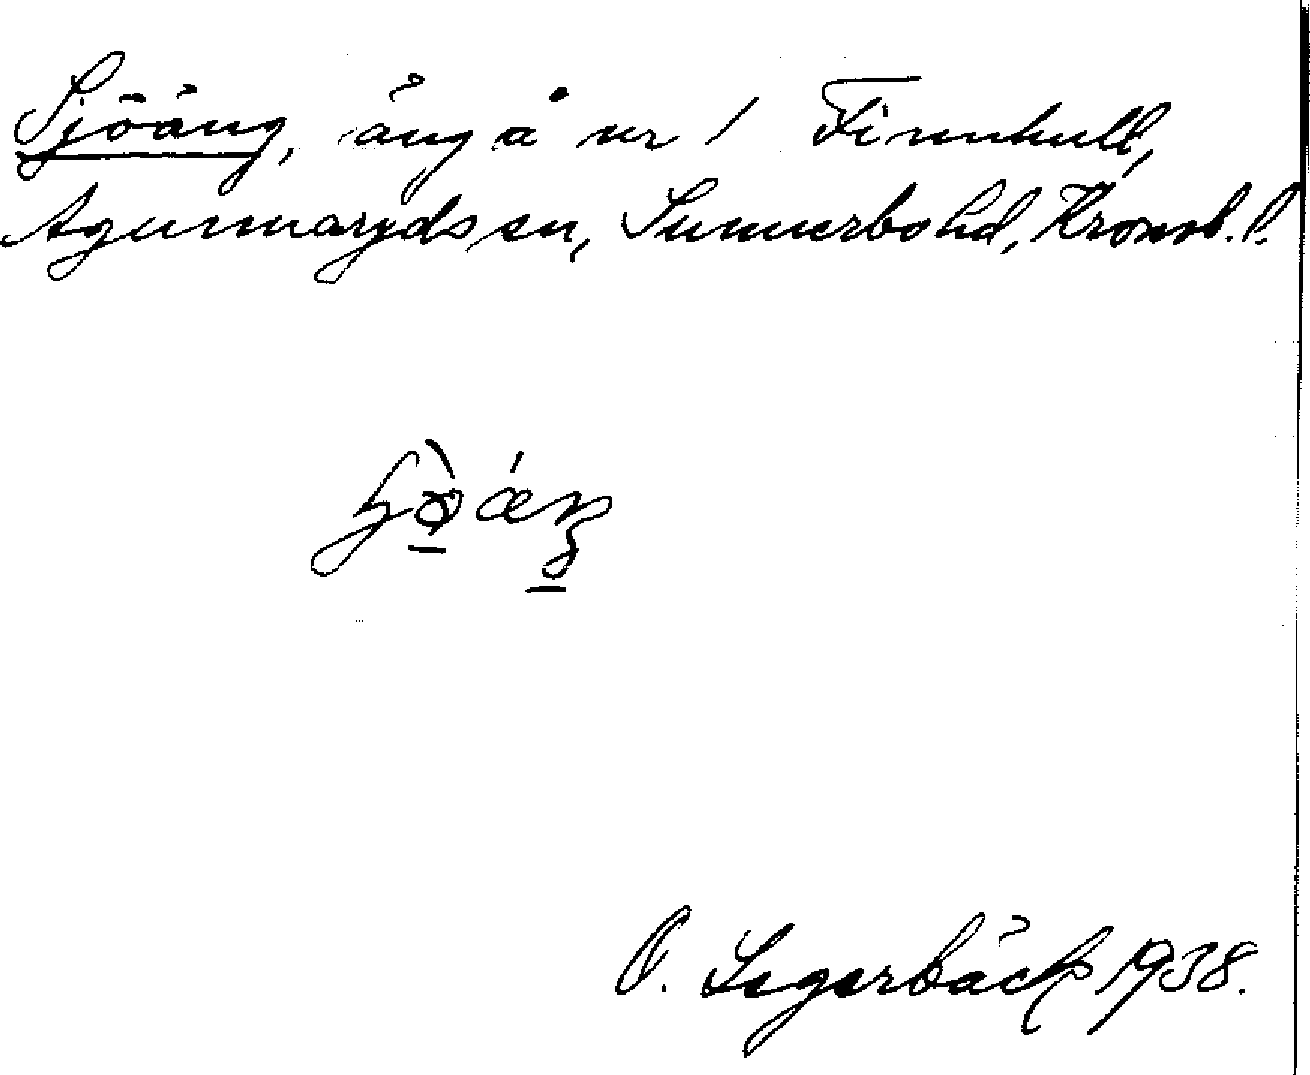 Sjöäng, äng å nr 1 Finnhult,
Agunnaryds sn, Sunnerbo hd, Kronob. l.
O. Segerbäck 1938.